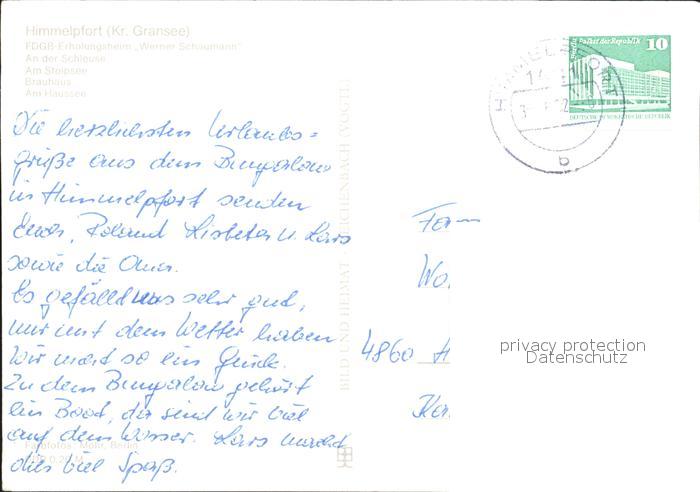 Himmelpfort (Kr. Gransee)
FDGB-Erholungsheim „Werner Schaumann"
An der Schleuse
Am Stolpsee
Brauhaus
Am Haussee
Die herzlichsten Urlaubs=
grüße aus dem Bungalow
in Himmelpfort senden
Euch, Roland u. Lars
sowie die Omi.
Es gefällt uns sehr gut,
nur mit dem Wetter haben
wir nicht so ein Glück.
Zu dem Bungalow gehört
ein Boot, da sind wir viel
auf dem Wasser. Lars macht
dies viel Spaß.
Farbfotos: Mohr, Berlin
0,20 M
BILD UND HEIMAT REICHENBACH (VOGTL)
HIMMELPFORT
b
Palast der Republik 10
DEUTSCHE DEMOKRATISCHE REPUBLIK
Fam
Wo.
4860 H
privacy protection
Datenschutz